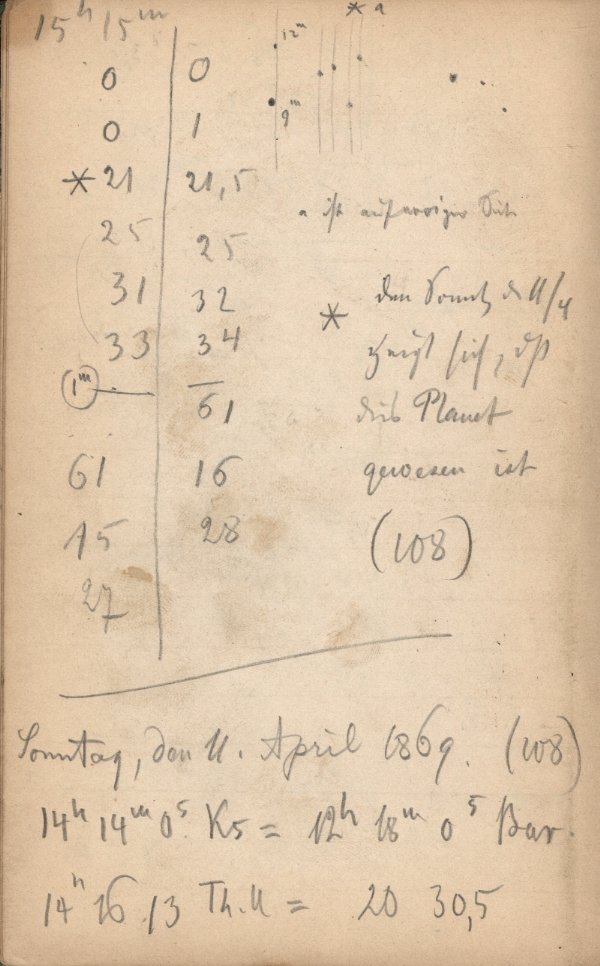 15h 15m
* a
12m
9m
0 0
0 1
* 21 21,5
25 25
31 32
33 34
1m — 61
61 16
15 28
27
a ist auf voriger Seite
* den Sonntg d. 11/4
zeigt sich, dß
dies Planet
gewesen ist
(108)
Sonntag, den 11. April 1869. (108)
14h 14m 0s K5 = 12h 18m 0s Bar.
14h 16 13 Th.U = 20 30,5